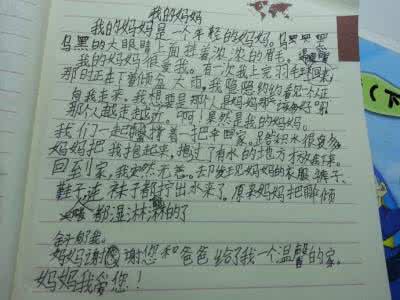 我的妈妈
我的妈妈是一个年轻的妈妈。乌黑
乌黑的大眼睛上面挂着浓浓的眉毛。
我的妈妈很爱我。有一次我上完羽毛球回来
那时正在下着倾盆大雨,我隐隐约约看见一个人正
向我走来。我想要是那个人是妈妈那该多好
那个人越走越近。啊!果然是我的妈妈。
我们一起撑着一把伞回家。路积水很多
妈妈把我抱起来,抱过了有水的地方才放下来。
回到家,我安然无恙。去发现妈妈的衣服、裤子、
鞋子连袜子都拧出水来了。原来妈妈把伞倾
都湿淋淋的了
给我。
妈妈谢谢您和爸爸给了我一个温馨的家。
妈妈我爱您!
下